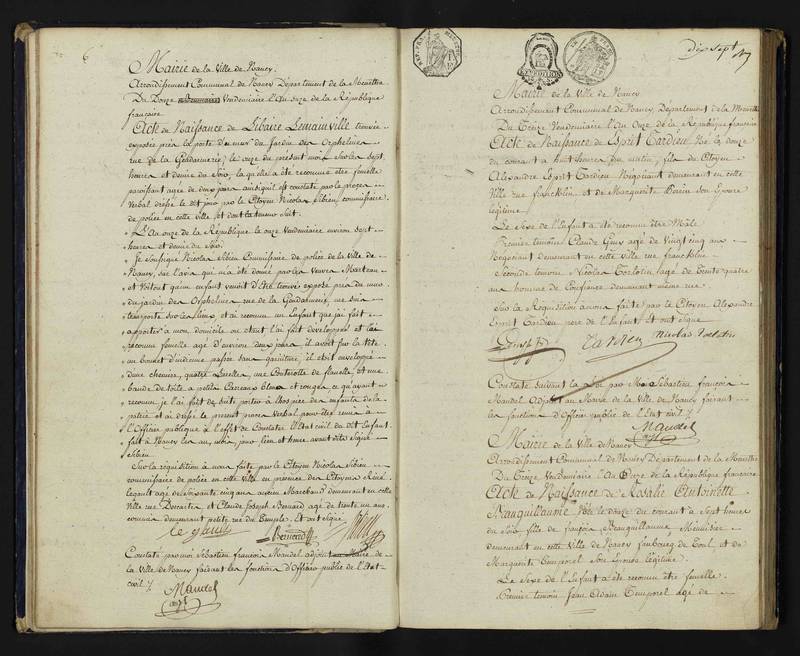 6
Mairie de la Ville de Nancy.
Arrondissement Communal de Nancy Département de la Meurthe
Du Douze Vendemiaire l'An Onze de la République
francaise
Acte de Naissance de Libaire Lemainville trouvée
exposée près la porte d'un mur du Jardin des Orphelines
rue de la Gendarmerie, le onze du present mois sur les sept
heures et demie du soir, laquelle a été reconnue être femelle
paroissant agée de deux jours ainsi qu'il est constaté par le proces
Verbal dressé le dit jour par le Citoyen Nicolas Sibien, commissaire
de police en cette ville, et dont la teneur suit.
L'An onze de la République le onze Vendemiaire environ sept
heures et demie du Soir.
Je Soussigné Nicolas Sibien Commissaire de police de la Ville de
Nancy, sur l'avis qui m'a été donné par les veuves Marteau
et Voitout qu'un enfant venoit d'être trouvé exposé près du mur
du jardin des Orphelines rue de la Gendarmerie, me suis
transporté sur le champ et ai reconnu un Enfant que j'ai fait
apporter à mon domicile ou etant l'ai fait developper et l'ai
reconnu femelle agé d'environ deux jours il avoit sur la tête
un bonnet d'indienne sans garniture, il etoit enveloppé
deux chemises, quatre de flanelle, et une
bande de toile a petits Carreaux bleus et rouges ce qu'ayant
reconnu je l'ai fait de suite porter à l'hospice des enfants de la
patrie et ai dressé le present proces Verbal pour être remis à
l'Officier publique à l'effet de Constater l'Etat civil du dit Enfant
fait à Nancy les an, mois, jour, lieu et heure avant dits Signé
Sibien.
Sur la réquisition à nous faite par le Citoyen Nicolas Sibien
commissaire de police en cette ville en présence des Citoyens René
legault agé de Soixante cinq ans ancien Marchand demeurant en cette
Ville rue Descartes et Claude Joseph Bernard agé de trente un ans
commis demeurant petite rue du Temple. Et ont signé
legault Bernard
Constaté par moi Sébastien françois Mandel adjoint au Maire de
la Ville de Nancy faisant les fonctions d'Officier public de l'Etat
civil
Mandel
adjt
Dix Sept 17
Mairie de la Ville de Nancy
Arrondissement Communal de Nancy, Département de la Meurthe
Du Treize Vendemiaire l'An Onze de la République francaise
Acte de Naissance de Esprit Tardieu Né le douze
du courant a huit heures du matin, fils de Citoyen
Alexandre Esprit Tardieu Négociant demeurant en cette
Ville rue francklin et de Marguerite son Epouse
légitime.
Le Sexe de l'Enfant a été reconnu être Mâle
Premier temoin Claude agé de Vingt cinq ans
Négociant demeurant en cette ville rue francklin
Second temoin Nicolas agé de Trente quatre
ans homme de Confiance demeurant même rue
Sur la Réquisition à nous faite par le Citoyen Alexandre
Esprit Tardieu pere de l'Enfant Et ont signé
Tardieu Nicolas
Constaté suivant la Loi par Moi Sébastien françois
Mandel Adjoint au Maire de la Ville de Nancy faisant
les fonctions d'Officier public de l'Etat civil
Mandel
adjt
Mairie de la Ville de Nancy
Arrondissement Communal de Nancy Département de la Meurthe
Du Treize Vendemiaire l'An Onze de la République francaise
Acte de Naissance de Rosalie Antoinette
Beauquillaume Née le douze du courant a Sept heures
du Soir fille de françois Beauquillaume, Menuisier
demeurant en cette Ville de Nancy fauxbourg de Toul, et de
Marguerite Temporel Son Epouse légitime.
Le Sexe de l'Enfant a été reconnu être femelle.
Premier temoin Jean Temporel agé de